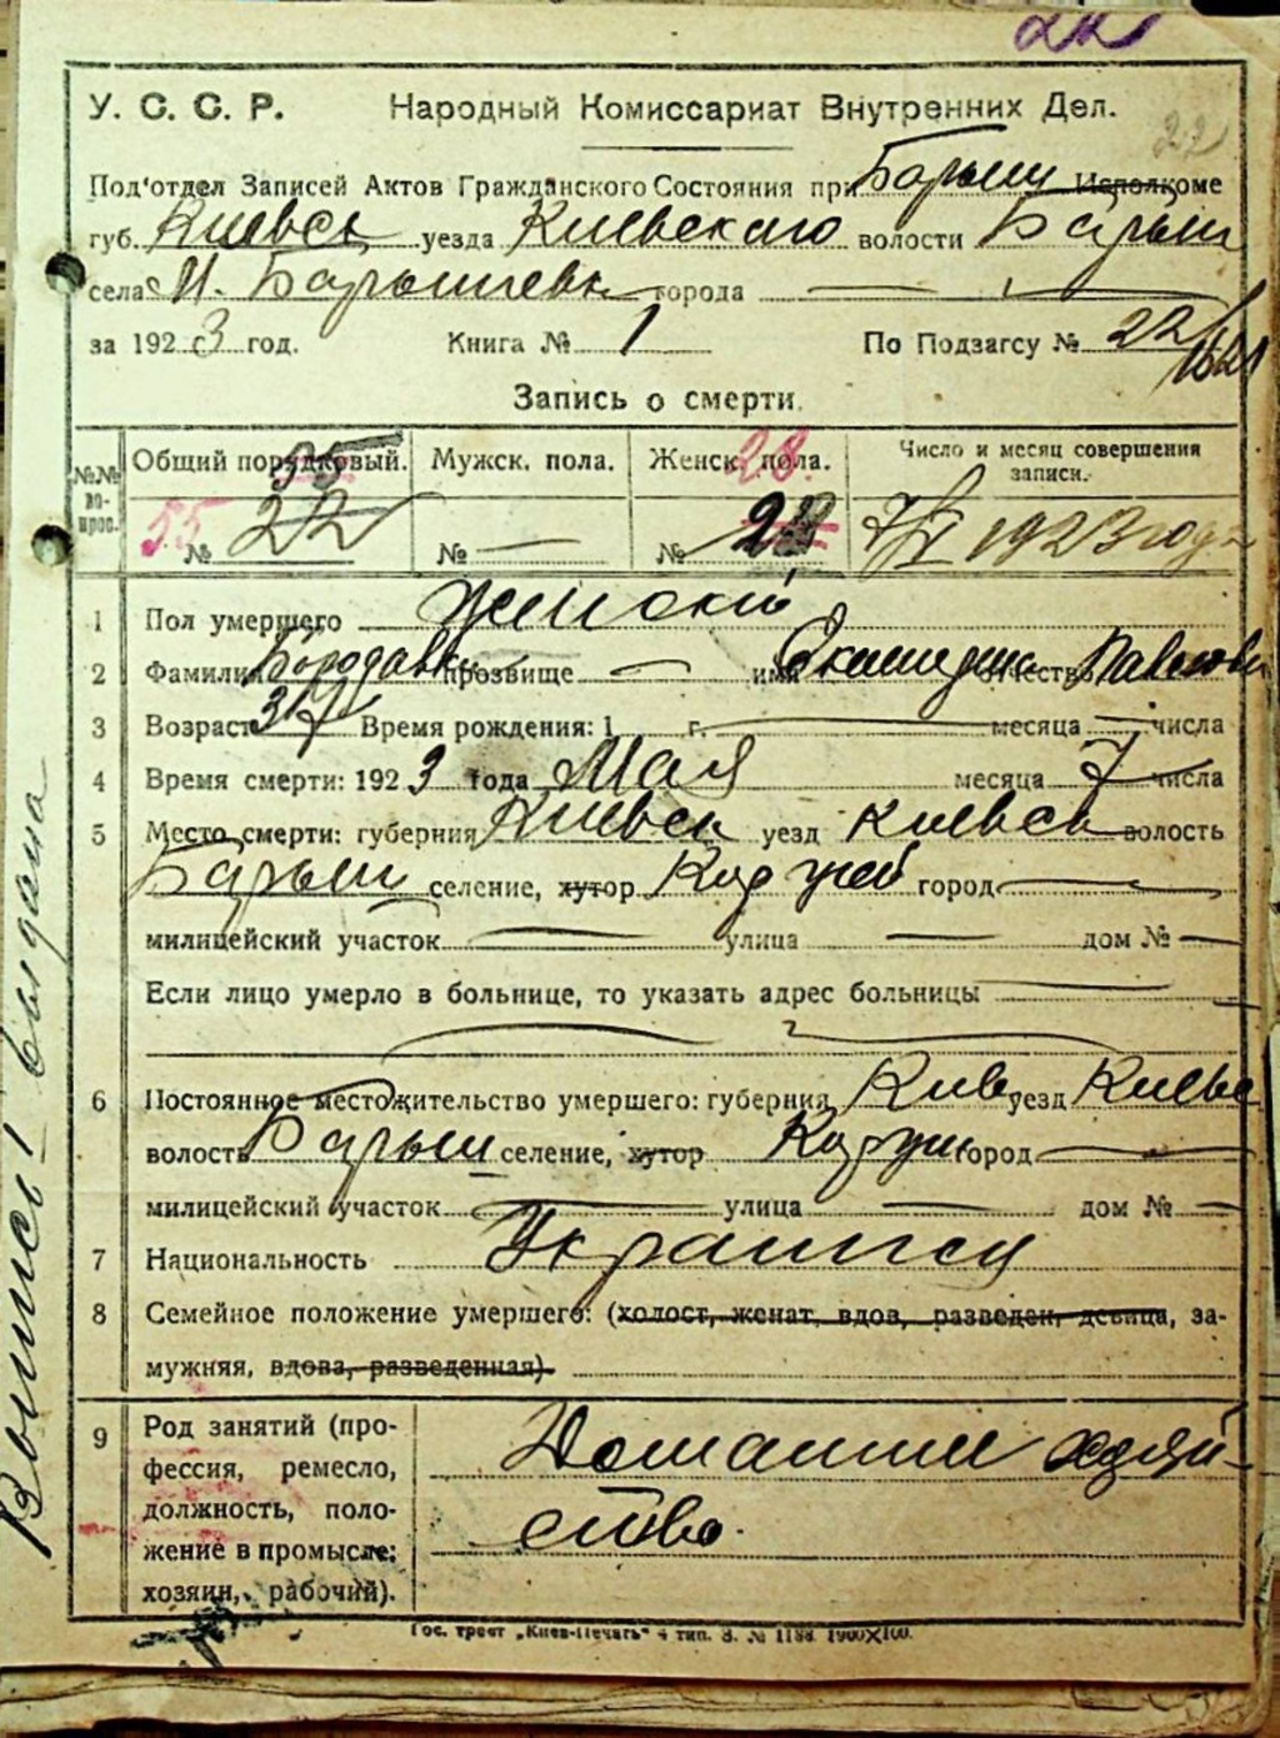 22
У. С. С. Р. Народный Комиссариат Внутренних Дел.
22
Под'отдел Записей Актов Гражданского Состояния при Барыш Исполкоме
губ. Киевск уезда Киевского волости Барыш
села М. Барышевк города —
за 1923 год. Книга № 1 По Подзагсу № 22/
Запись о смерти.
№№ во-прос. Общий порядковый. Мужск. пола. Женск. пола. Число и месяц совершения записи.
55 28
55 № 22 № — № 1923 года
1 Пол умершего Женский
2 Фамилия Бородавк прозвище — имя отчество Павловн
3 Возраст 37 Время рождения: 1 г. — месяца — числа
4 Время смерти: 1923 года Мая месяца 7 числа
5 Место смерти: губерния Киевск уезд Киевск волость
Барыш селение, хутор город —
милицейский участок — улица — дом № —
Если лицо умерло в больнице, то указать адрес больницы —
6 Постоянное местожительство умершего: губерния Киев уезд Киевс
волость Барыш селение, хутор город —
милицейский участок — улица — дом № —
7 Национальность
8 Семейное положение умершего: (холост, женат, вдов, разведен, девица, за-
мужняя, вдова, разведенная)
9 Род занятий (про-
фессия, ремесло,
должность, поло-
жение в промысле:
хозяин, рабочий).
Домашнее хозяй-
ство.
Гос. трест „Киев-Печать" 4 тип. З. № 1188 1900X100.
Выпись выдана